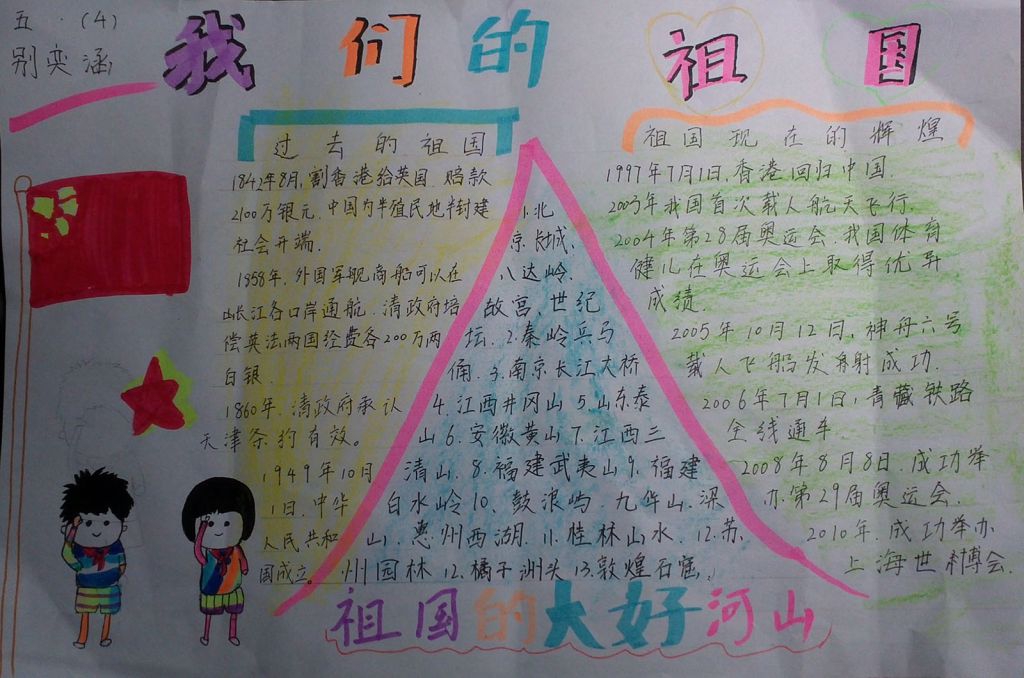 五.(4)
别奕涵
我们的祖国
过去的祖国
1842年8月,割香港给英国.赔款
2100万银元.中国为半殖民地半封建
社会开端.
1958年.外国军舰商船可以在
长江各口岸通航.清政府培
偿英法两国经费各200万两
白银.
1860年.清政府承认
天津条约有效。
1949年10月
1日.中华
人民共和
国成立。
1.北
京长城、
八达岭、
故宫、世纪
坛、2.秦岭兵马
俑.3.南京长江大桥
4.江西井冈山5.山东泰
山6.安徽黄山7.江西三
清山.8.福建武夷山9.福建
白水岭10、鼓浪屿.九华山.深
山、惠州西湖.11.桂林山水.12.苏
州园林12.橘子洲头13.敦煌石窟、
祖国现在的辉煌
1997年7月1日,香港回归中国.
2003年我国首次载人航天飞行.
2004年第28届奥运会.我国体育
健儿在奥运会上取得优异
成绩.
2005年10月12日,神舟六号
载人飞船发射成功.
2006年7月1日,青藏铁路
全线通车.
2008年8月8日.成功举
办第29届奥运会.
2010年.成功举办
上海世博会.
祖国的大好河山